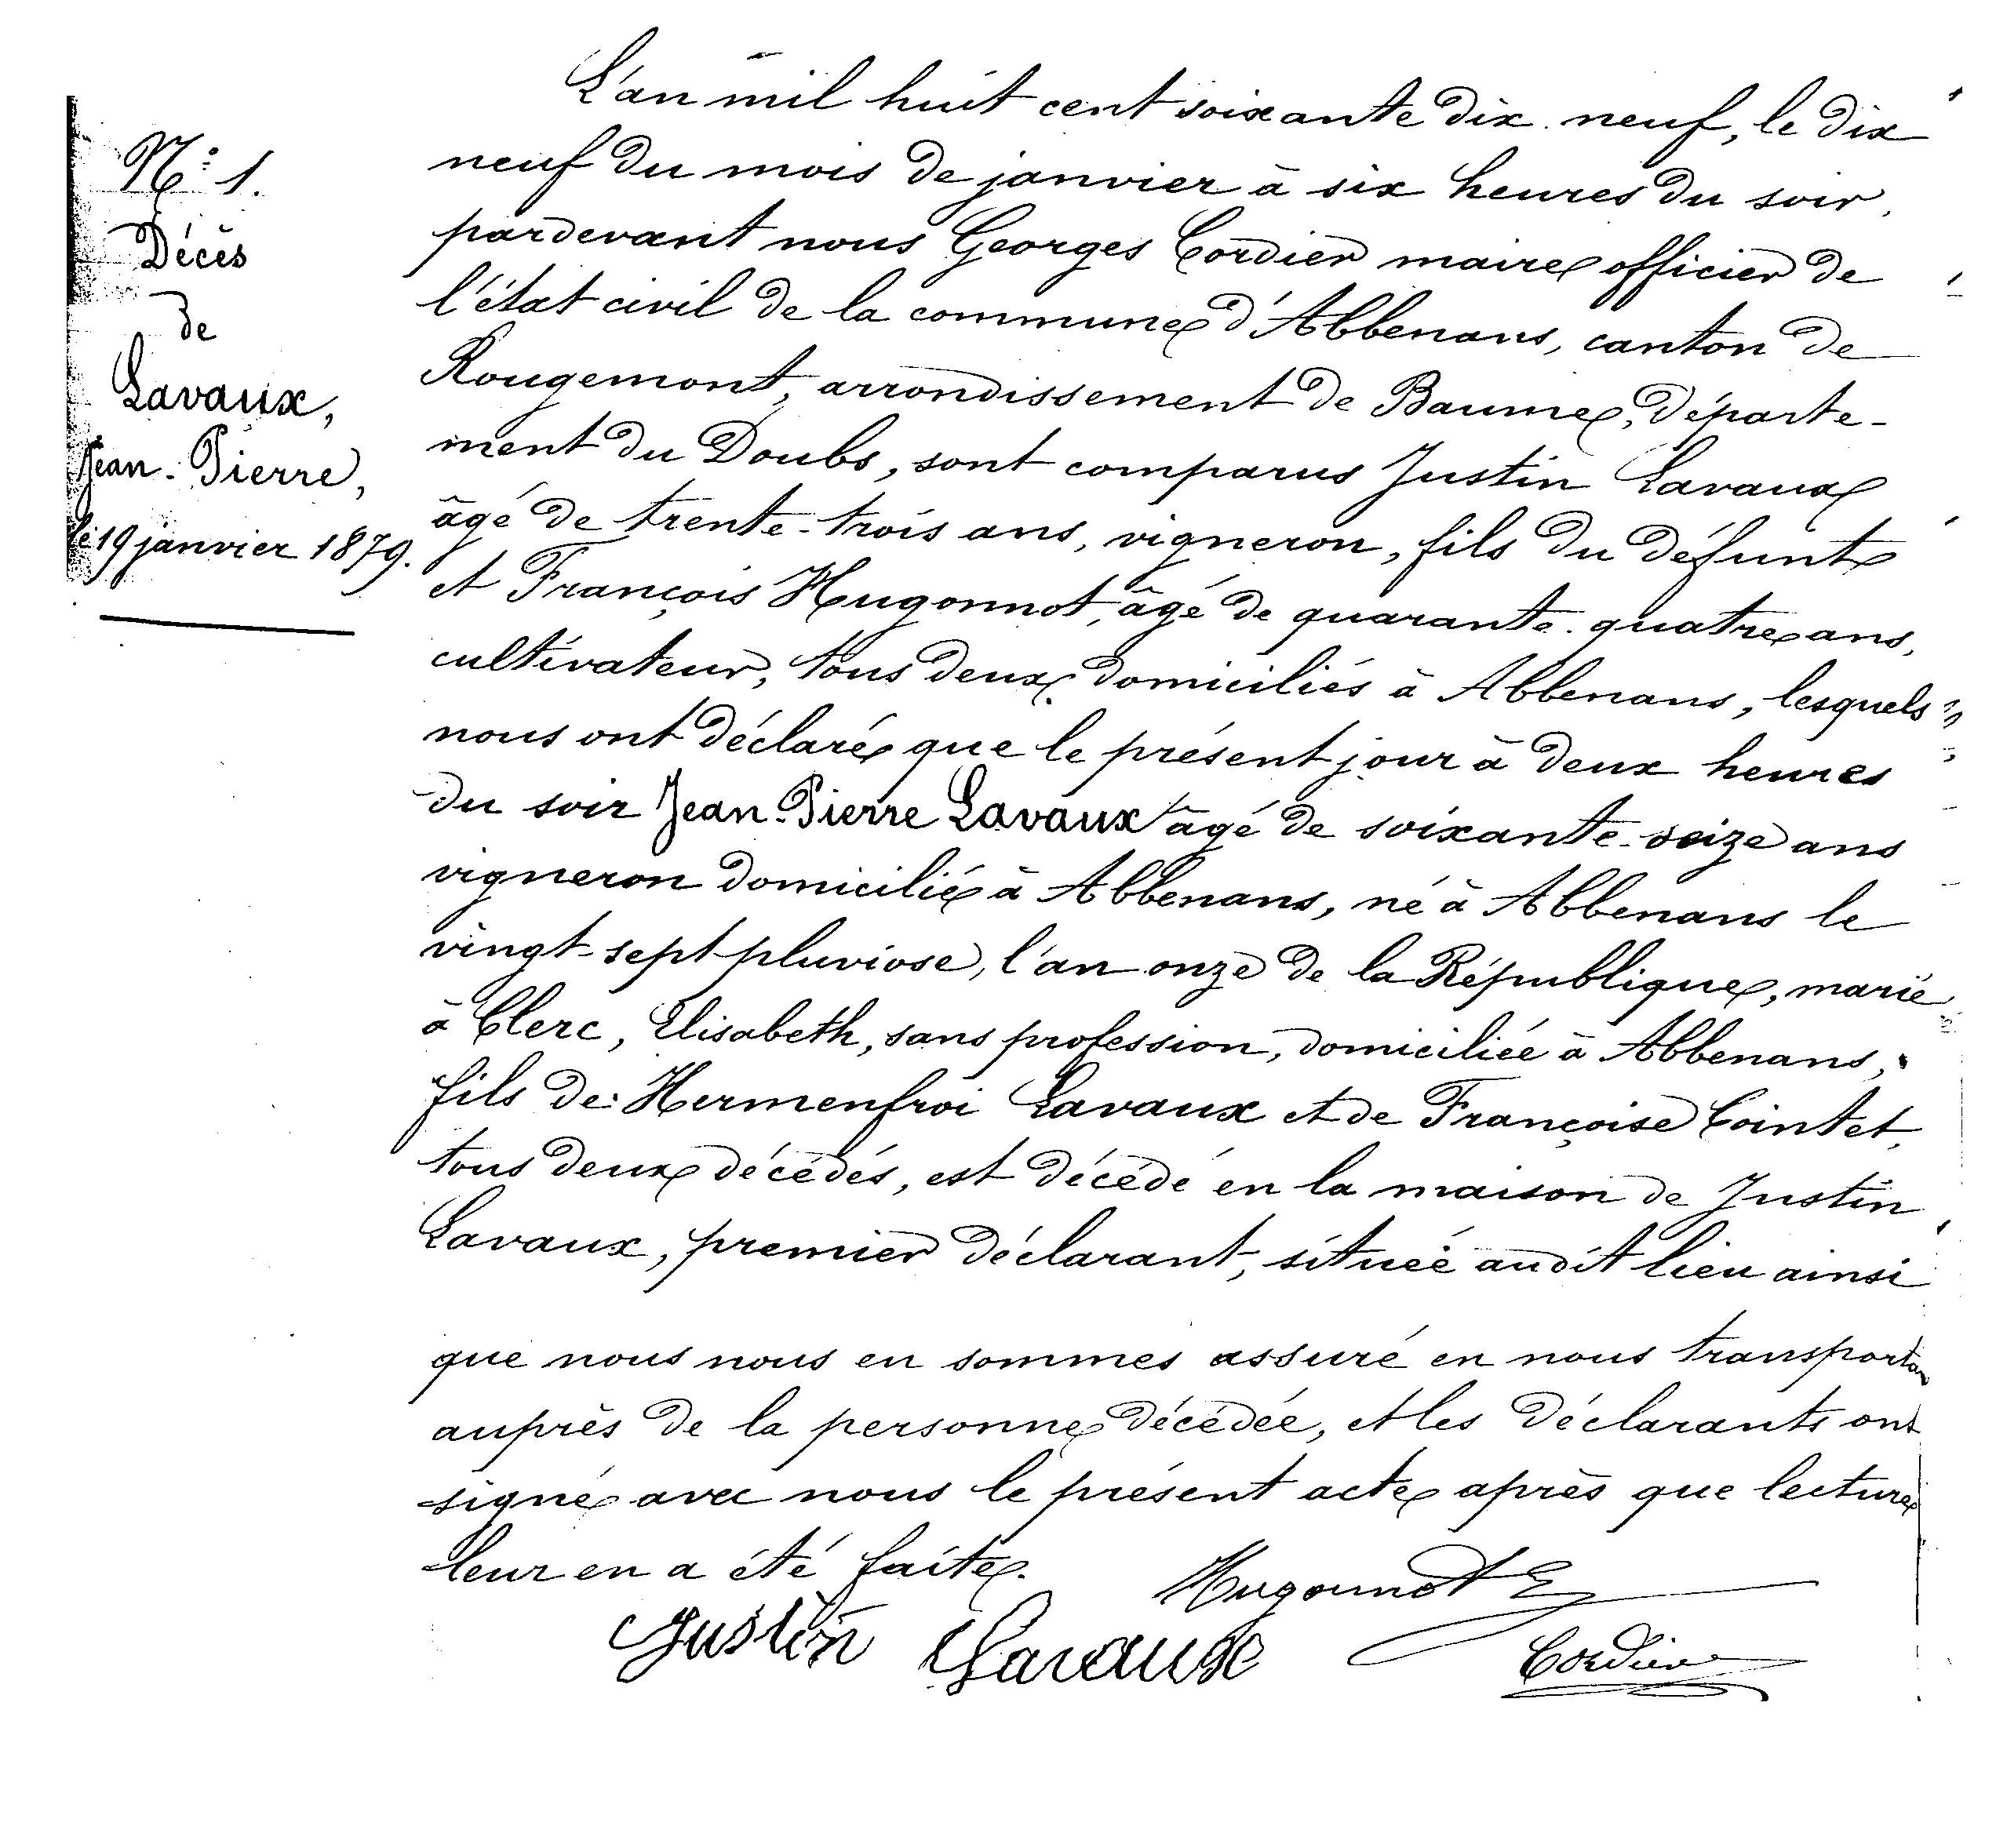 N° 1.
Décès
de
Lavaux,
Jean-Pierre,
le 19 janvier 1879.
L'an mil huit cent soixante dix-neuf, le dix
neuf du mois de janvier à six heures du soir,
pardevant nous Georges Cordier maire officier de
l'état civil de la commune d'Abbenans, canton de
Rougemont, arrondissement de Baume, départe-
ment du Doubs, sont comparus Justin Lavaux
âgé de trente-trois ans, vigneron, fils du défunt
et François Hugonnot, âgé de quarante-quatre ans,
cultivateur, tous deux domiciliés à Abbenans, lesquels
nous ont déclaré que le présent jour à deux heures
du soir Jean-Pierre Lavaux âgé de soixante-seize ans
vigneron domicilié à Abbenans, né à Abbenans le
vingt-sept pluviose, l'an onze de la République, marié
à Clerc, Elisabeth, sans profession, domiciliée à Abbenans,
fils de Hermenfroi Lavaux et de Françoise Cointet,
tous deux décédés, est décédé en la maison de Justin
Lavaux, premier déclarant, située audit lieu ainsi
que nous nous en sommes assuré en nous transportant
auprès de la personne décédée, et les déclarants ont
signé avec nous le présent acte après que lecture
leur en a été faite.
Hugonnot
Justin Lavaux
Cordier